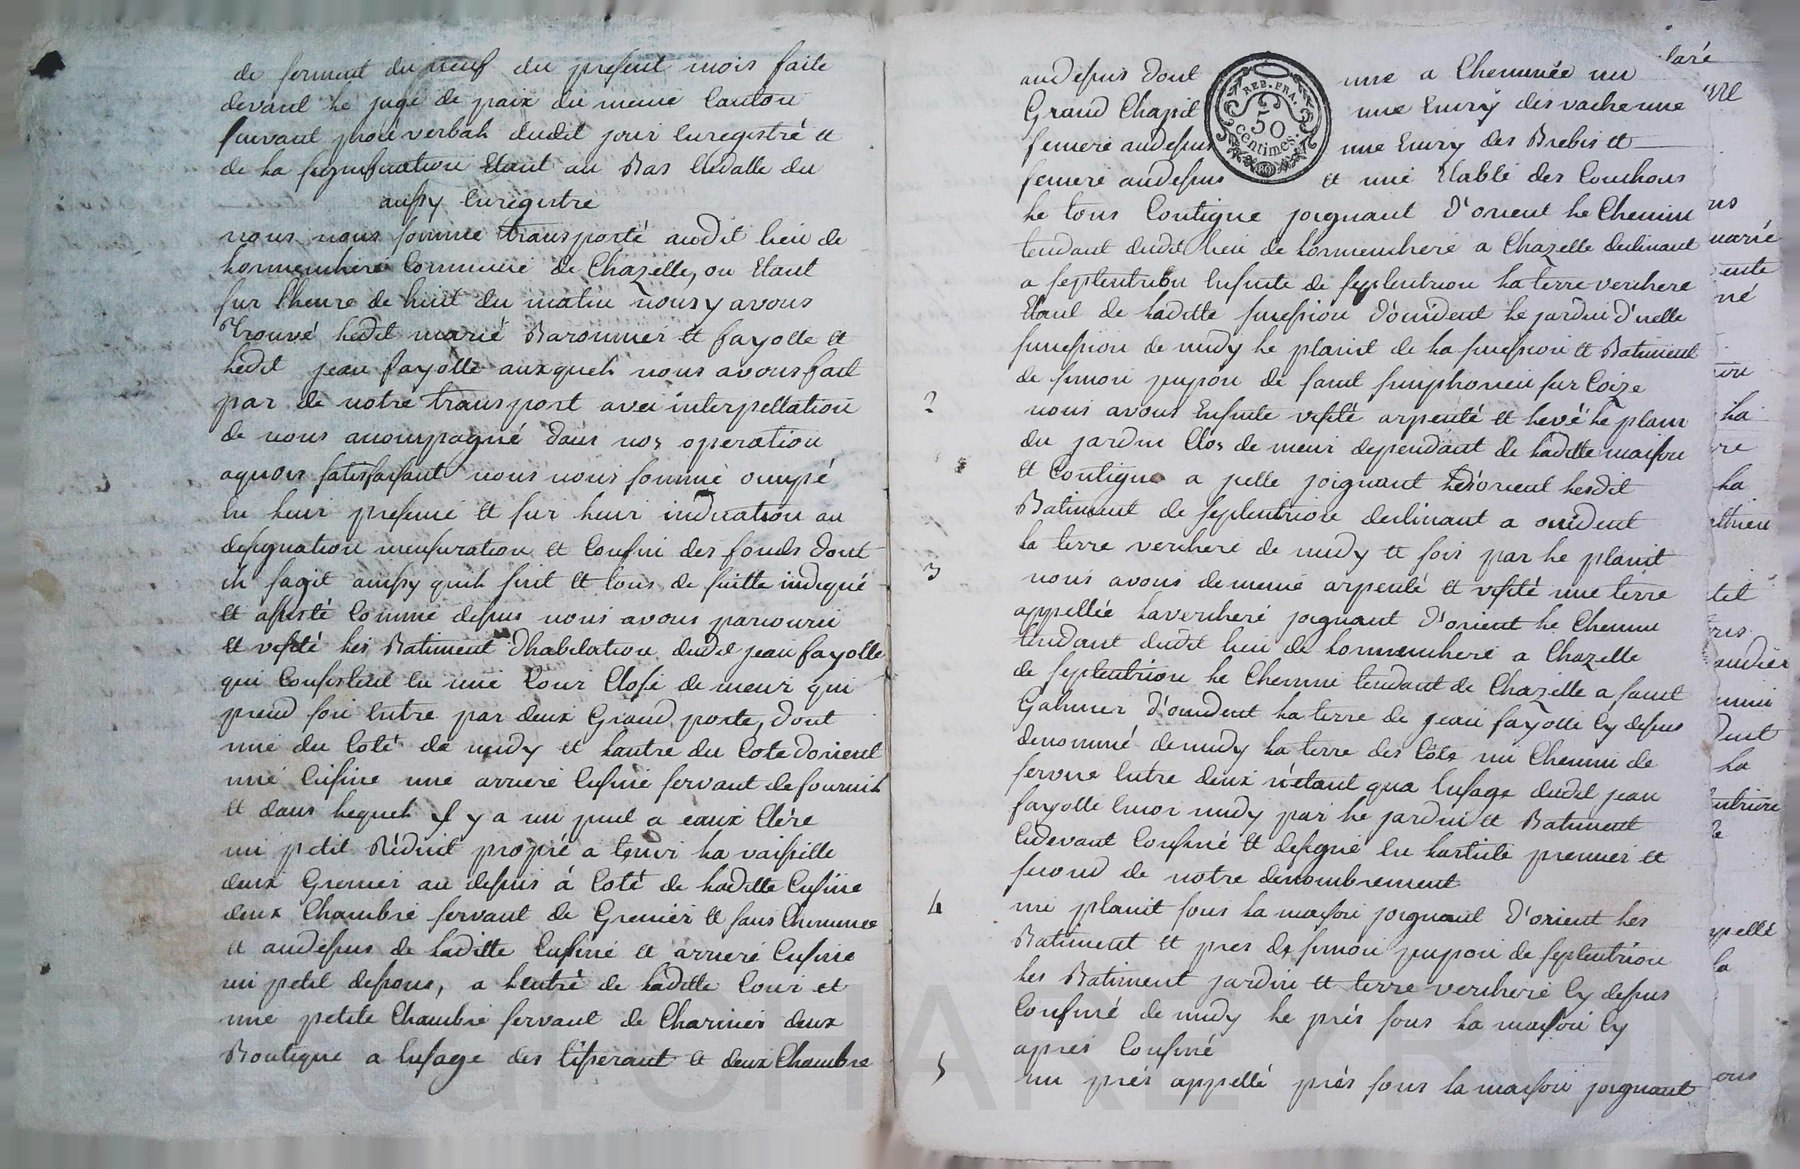 de serment du neuf du present mois faite
devant he juge de paix du meme Canton
suivant proces verbah dudit jour Enregistré et
de ha signification Etant au Bas Endatte du
aussy Enregistre
nous nous somme transporté audit hieu de
hormenhere Commune de Chazelle, ou Etant
sur Lheure de huit du matin nous y avons
trouvé hedit marié Baronnier et fayolle et
hedit jean fayolle auxqueh nous avons fait
par de notre transport avec interpellation
de nous acompagné dans nos operation
aquoy satisfaisant nous nous somme ocupé
En heur presence et sur heur indication au
designation mensuration et Confin des fonds dont
ih sagit aussy quih suit et tous de suitte indiqué
et assisté Comme desus nous avons parcouru
et visité hes Batiment dhabitation dudit jean fayolle
qui Consistent En une Cour Close de meur qui
prend son Entre par deux Grand porte, dont
une du Coté de midy et hautre du Cote dorient
une Cuisine une arriere Cuisine servant de fournih
et dans hequeh il y a un puit a eaux Clere
un petit Réduit propre a tenir ha vaisselle
deux Grenier au desus à Coté de hadite Cuisine
deux Chambre servant de Grenier et sans Cheminée
et audesus de hadite Cuisine et arriere Cuisine
un petit desous, a hentré de hadite Cour et
une petite Chambre servant de Charnier deux
Boutique a Lusage des tisserant et deux Chambre
audesus dont une a Cheminée un
Grand Chapit une Ecury des vache une
feniere audesus une Ecury des Brebis et
feniere audesus et une Etable des Couchons
he tous Contigue joignant D'orient he Chemin
tendant dudit hieu de hormenhere a Chazelle declinant
a septentrion Ensuite de septentrion ha terre verchere
Etant de hadite sucession D'occident he jardin D'icelle
sucession de midy he planit de ha sucession et Batiment
de simon pupon de saint simphorien sur Coize
REP. FRA. 50 centimes.
2 nous avons Ensuite visité arpenté et hevé he plans
du jardin Clos de meur dependant de hadite maison
et Contigue a icelle joignant D'orient hesdit
Batiment de septentrion declinant a occident
ha terre verchere de midy et soir par he planit
3 nous avons de meme arpenté et visité une terre
appellée haverchere joignant D'orient he Chemin
tendant dudit hieu de hormenhere a Chazelle
de septentrion he Chemin tendant de Chazelle a saint
Galmier D'occident ha terre de jean fayolle Cy desus
denommé de midy ha terre des Côte un Chemin de
servue Entre deux n'etant qua Lusage dudit jean
fayolle Encor midy par he jardin et Batiment
Cidevant Confiné et designé En hartícle premier et
second de notre denombrement
4 un planit sous ha maison joignant D'orient hes
Batiment et pres de simon pupon de septentrion
hes Batiment jardin et terre verchere Cy desus
Confiné de midy he prés sous ha maison Cy
apres Confiné
5 un prés appellé prés sous ha maison joignant